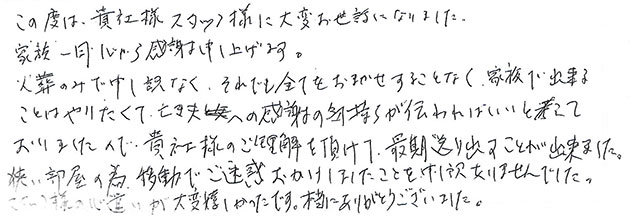 この度は、貴社様スタッフ様に大変お世話になりました。
家族一同心から感謝申し上げます。
火葬のみで申し訳なく、それでも全てをおまかせすることなく、家族で出来る
ことはやりたくて、亡き夫への感謝の気持ちが伝わればいいと考えて
おりましたので、貴社様のご理解を頂けて、最期送り出すことが出来ました。
狭い部屋の為、移動でご迷惑おかけしましたことを申し訳ありませんでした。
様の心遣いが大変嬉しかったです。本当にありがとうございました。